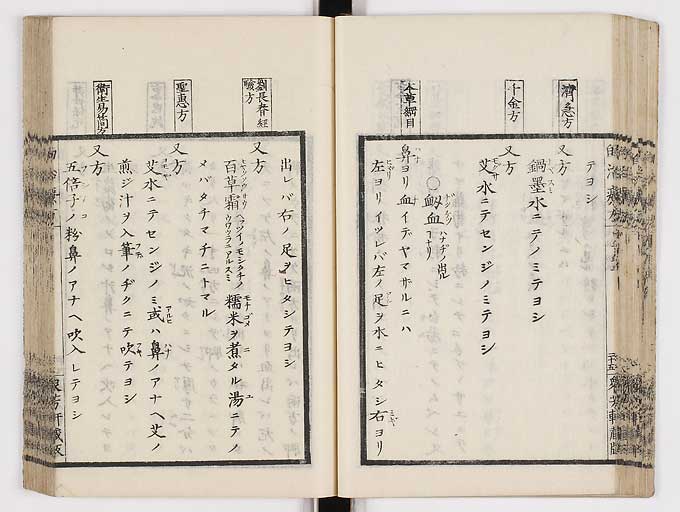 テヨシ
濟急方
又方
鍋墨水ニテノミテヨシ
千金方
又方
艾水ニテセンジノミテヨシ
○衂血
ハナヂノ出ル
本草綱目
鼻ヨリ血イデヤマザルニハ
左ヨリイヅレバ左ノ足ヲ水ニヒタシ右ヨリ
出レバ右ノ足ヲヒタシテヨシ
劉長春經驗方
又方
百草霜 糯米ヲ煮タル湯ニテノ
メバタチマチニトマル
聖惠方
又方
艾水ニテセンジノミ或ハ鼻ノアナヘ艾ノ
煎ジ汁ヲ入筆ノヂクニテ吹テヨシ
衛生易簡方
又方
五倍子ノ粉鼻ノアナヘ吹入レテヨシ